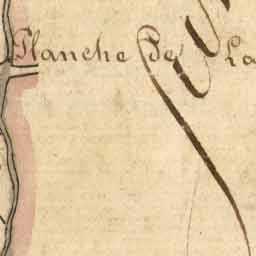 Planche De La